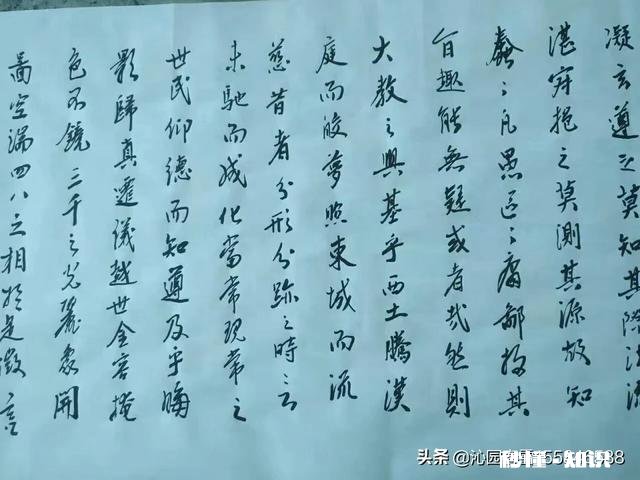 凝玄遵之莫知其際法流
湛寂挹之莫測其源故知
蠢〻凡愚區〻庸鄙投其
旨趣能無疑或者哉然則
大教之興基乎西土騰漢
庭而皎夢照東域而流
慈昔者分形分跡之時言
未馳而成化當常現常之
世民仰德而知遵及乎晦
影歸真遷儀越世金容掩
色不鏡三千之光麗象開
圖空端四八之相於是微言
头条 @沁园